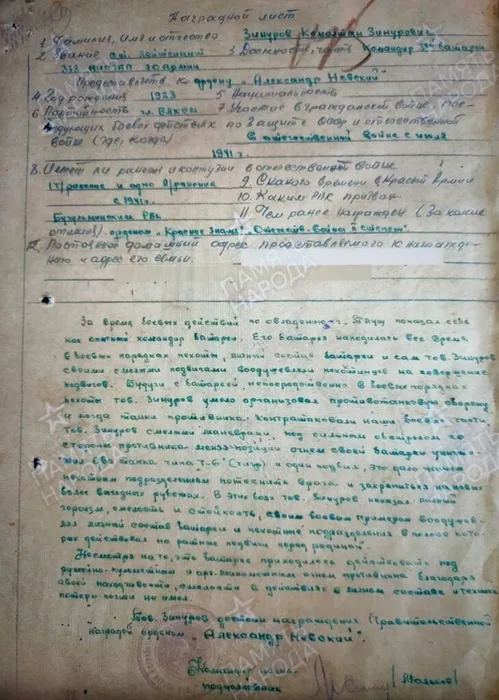 Наградной лист
1. Фамилия, имя и отчество Зинуров Зинурович
2. Звание ст. лейтенант 3. Должность, часть Командир батареи
Представляется к ордену „Александр Невский"
4. Год рождения 1923 5. Национальность
6. Партийность чл. ВЛКСМ 7. Участие в гражданской войне, пос-
ледующих боевых действиях по защите СССР и отечественной
войне (где, когда) В отечественной войне с июля
1941 г.
8. Имеет ли ранения и контузии в отечественной войне
и одно ранение 9. С какого времени в Красной Армии
с 1941 г. 10. Каким РВК призван
Бугульминским РВК 11. Чем ранее награжден (За какие
отличия) орденом „Красное Знамя", „Отечеств. войны II степени"
12. Постоянный домашний адрес представляемого к награжде-
нию и адрес его семьи.
За время боевых действий по овладению г. показал себя
как опытный командир батареи. Его батарея находилась все время
в боевых порядках пехоты, личный состав батареи и сам тов. Зинуров
своими смелыми подвигами воодушевляли пехотинцев на совершение
подвигов. Будучи с батареей, непосредственно в боевых порядках
пехоты тов. Зинуров умело организовал противотанковую оборону
и когда танки противника контратаковали наши боевые части,
тов. Зинуров смелыми маневрами под сильным обстрелом со
стороны противника огнем своей батареи уничто-
жил два танка типа Т-6 (Тигр) и один подбил, это дало нашим
пехотным подразделениям потеснить врага и закрепиться на новых
более выгодных рубежах. В этих боях тов. Зинуров показал личный
героизм, смелость и стойкость, своим боевым примером воодушев-
лял личный состав батареи и пехотные подразделения в полосе кото-
рых действовал на ратные подвиги перед родиной.
Несмотря на то, что батарее приходилось действовать под
ружейно-пулеметным и арт. огнем противника благодаря
своей находчивости, смелости в действиях в личном составе и технике
потери почти не имел.
Тов. Зинуров достоин награждения Правительственной
наградой орденом „Александр Невский".
Командир полка
подполковник
ПАМЯТЬ
НАРОДА
ПАМЯТЬ
НАРОДА